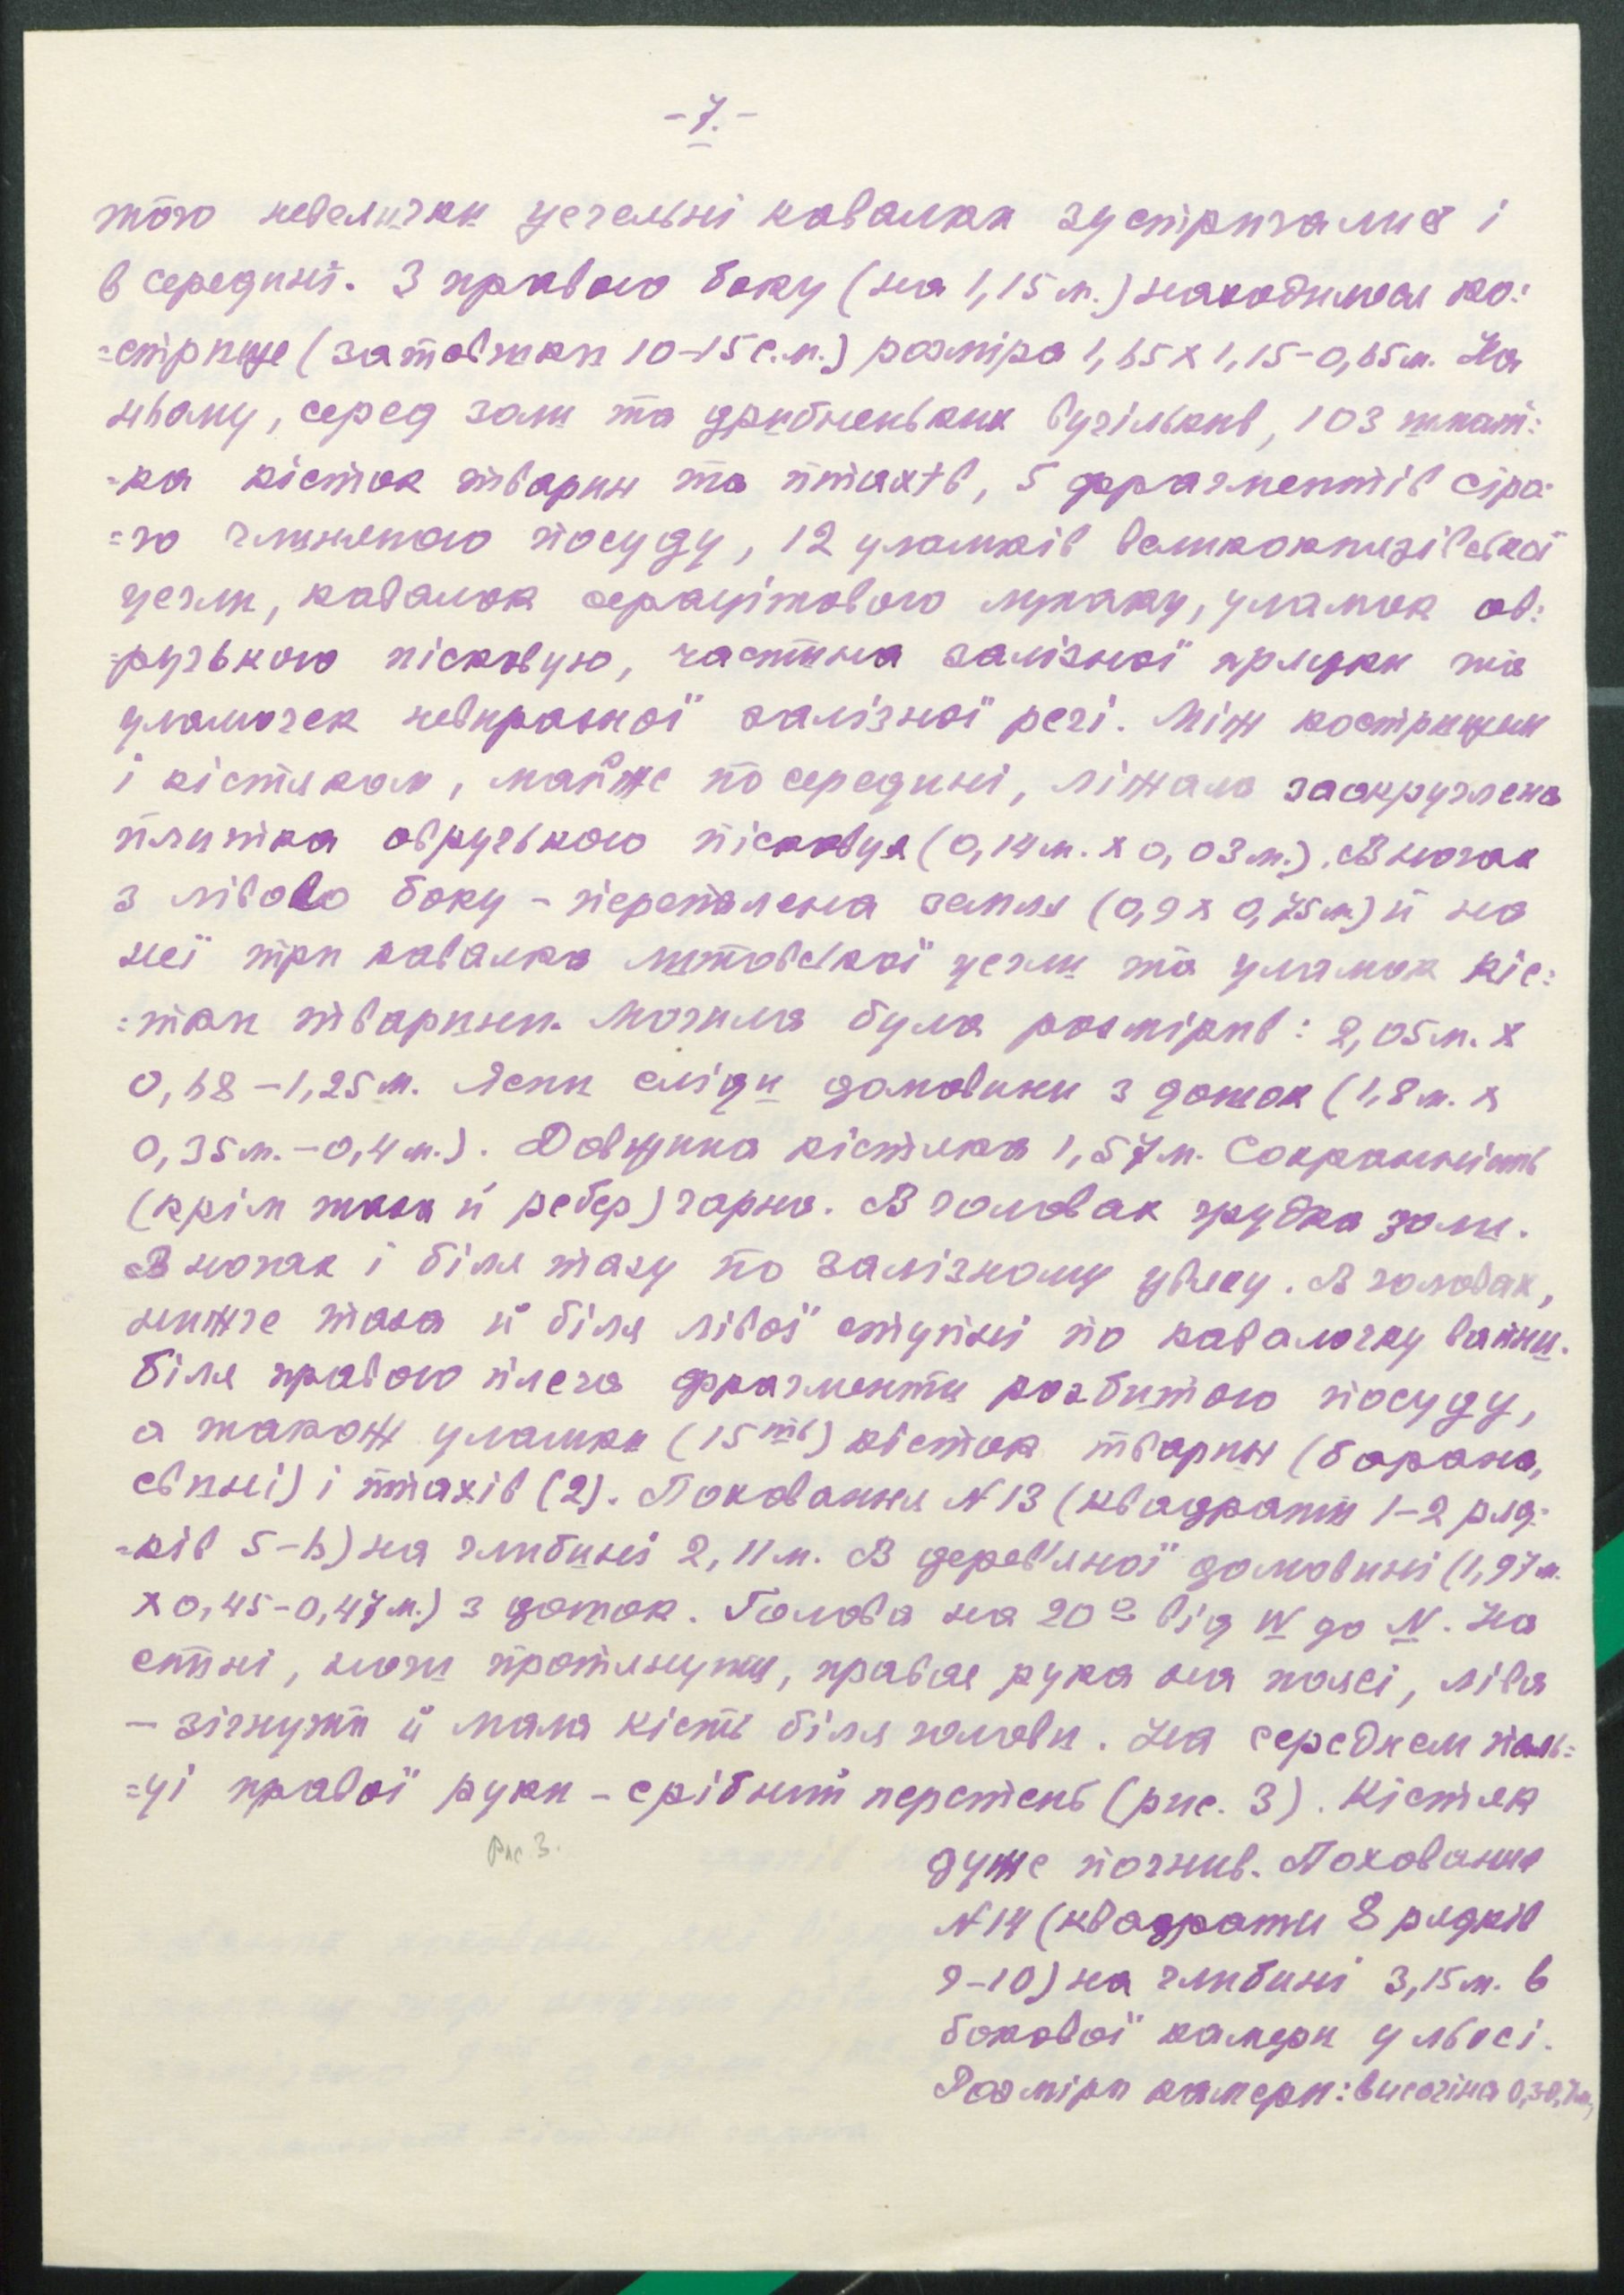 -7.-
того невелички цегельні кавалки зустричалис і
в середині. З правого боку (на 1,15 м.) находилося ко:
=стрище (затовшки 10-15 с.м.) розміра 1,65 х 1,15-0,65 м. На
ньому, серед золи та дрибненьких вугільків, 103 шмат:
=ка кісток тварин та птахів, 5 фрагментів сіро:
=го глиняного посуду, 12 уламків великокнязівської
цегли, кавалок серацітового лупаку, уламок ов:
=руцького пісковцю, частина залізної пряжки та
уламочек невиразної залізної речі. Між кострищем
і кістяком, майже посередині, ліжала заокруглена
плитка овруцького пісковця (0,14 м. х 0,03 м.). В ногах
з лівого боку - перепалена земля (0,9 х 0,75 м) й на
неї три кавалка литовської цегли та уламок кіс:
=тки тварини. Могила була розмірів: 2,05 м. х
0,68-1,25 м. Ясни сліди домовини з дошок (1,8 м. х
0,35 м.-0,4 м.). Довжина кістяка 1,57 м. Сохранність
(крім таза й ребер) гарна. В головах грудка золи.
В ногах і біля тазу по залізному цвяху. В головах,
нижче таза й біля лівої ступні по кавалочку вапни.
Біля правого плеча фрагменти розбитого посуду,
а також уламки (15 ть) кісток тварин (барана,
свині) і птахів (2). Поховання N 13 (квадрати 1-2 ряд:
=ків 5-6) на глибині 2,11 м. В дерев'яної домовині (1,97 м.
х 0,45-0,47 м.) з дошок. Голова на 20° від W до N. На
спині, ноги протягнути, правая рука на поясі, ліва
- зігнута й мала кість біля голови. На середнем паль:
=ці правої руки - срібний перстень (рис. 3). Кістяк
Рис 3.
дуже погнив. Поховання
N 14 (квадрати 8 рядків
9-10) на глибині 3,15 м. в
бокової камери у льосі.
Розміри камери: височіна 0,3-0,7 м,